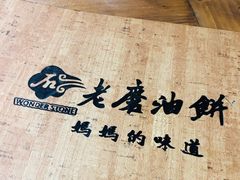 石
WONDER STONE
老磨油餅
媽媽的味道